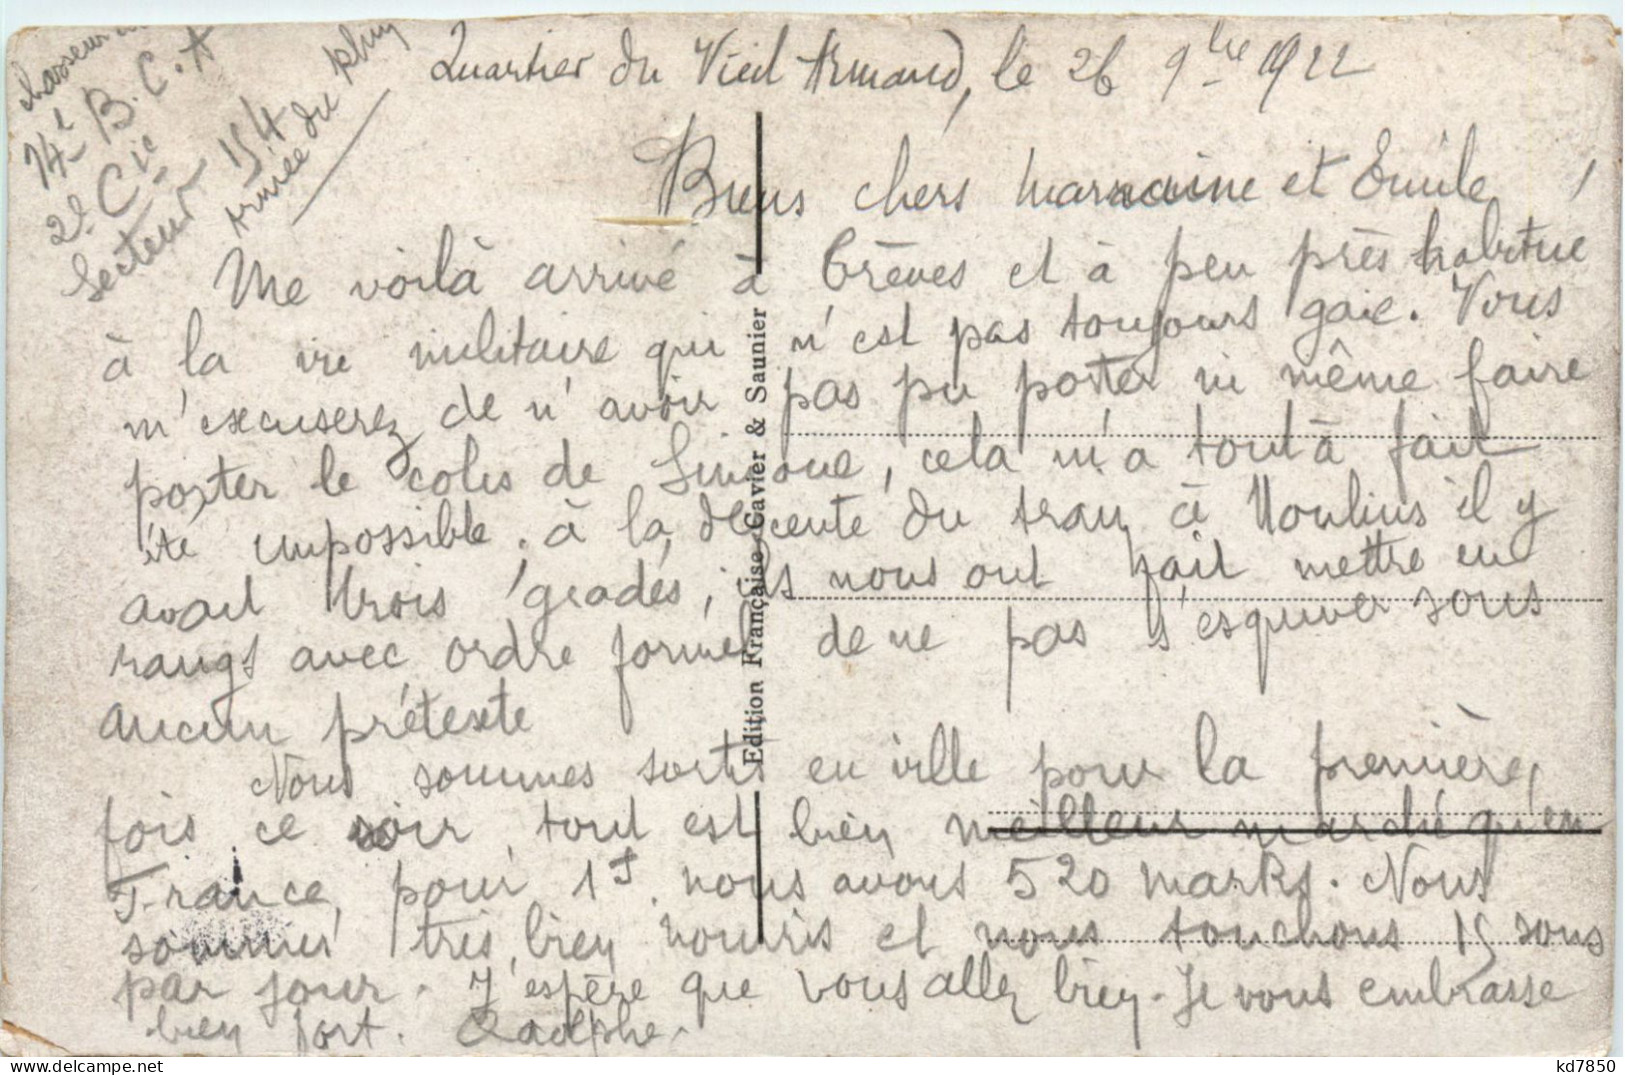 chasseur au
14e B.C.A
2e Cie
Secteur 154
Armée du Rhin
Quartier du Vieil Armand, le 26 9bre 1922
Biens chers marraine et Emile,
Me voilà arrivé à Trèves et à peu près habitué
à la vie militaire qui n'est pas toujours gaie. Vous
m'excuserez de n'avoir pas pu porter ni même faire
porter le colis de Simone, cela m'a tout à fait
été impossible. à la descente du train à Moulins il y
avait trois gradés, ils nous ont fait mettre en
rangs avec ordre formel de ne pas s'esquiver sous
aucun prétexte
Nous sommes sortis en ville pour la première
fois ce soir, tout est bien meilleur marché qu'en
France, pour 1f. nous avons 520 marks. Nous
sommes très bien nourris et nous touchons 15 sous
par jour. J'espère que vous allez bien. Je vous embrasse
bien fort. Adolphe.
Edition Française Gavier & Saunier
kd7850